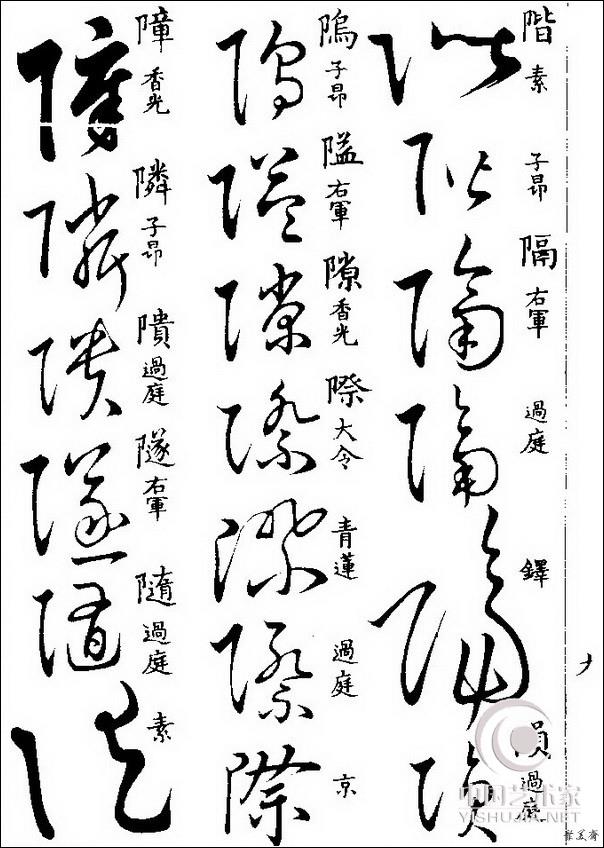 階 素 子昂 隔 右軍 過庭 鐸 隕 過庭
隖 子昂 隘 右軍 隙 香光 際 大令 青蓮 過庭 京
障 香光 隣 子昂 隤 過庭 隧 右軍 隨 過庭 素
中国艺术家
YISHUJIA.NET